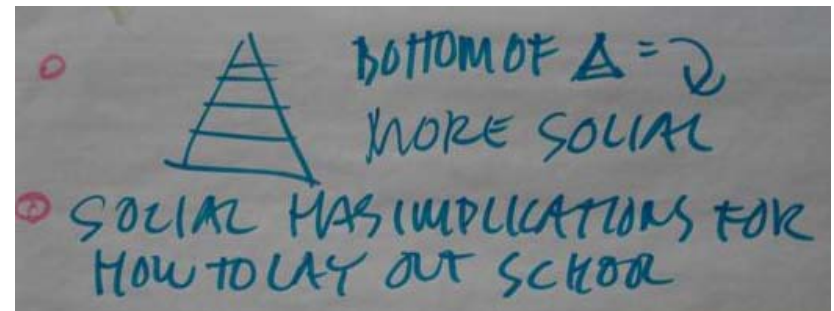 BOTTOM OF △ =
MORE SOCIAL
SOCIAL HAS IMPLICATIONS FOR
HOW TO LAY OUT SCHOOL